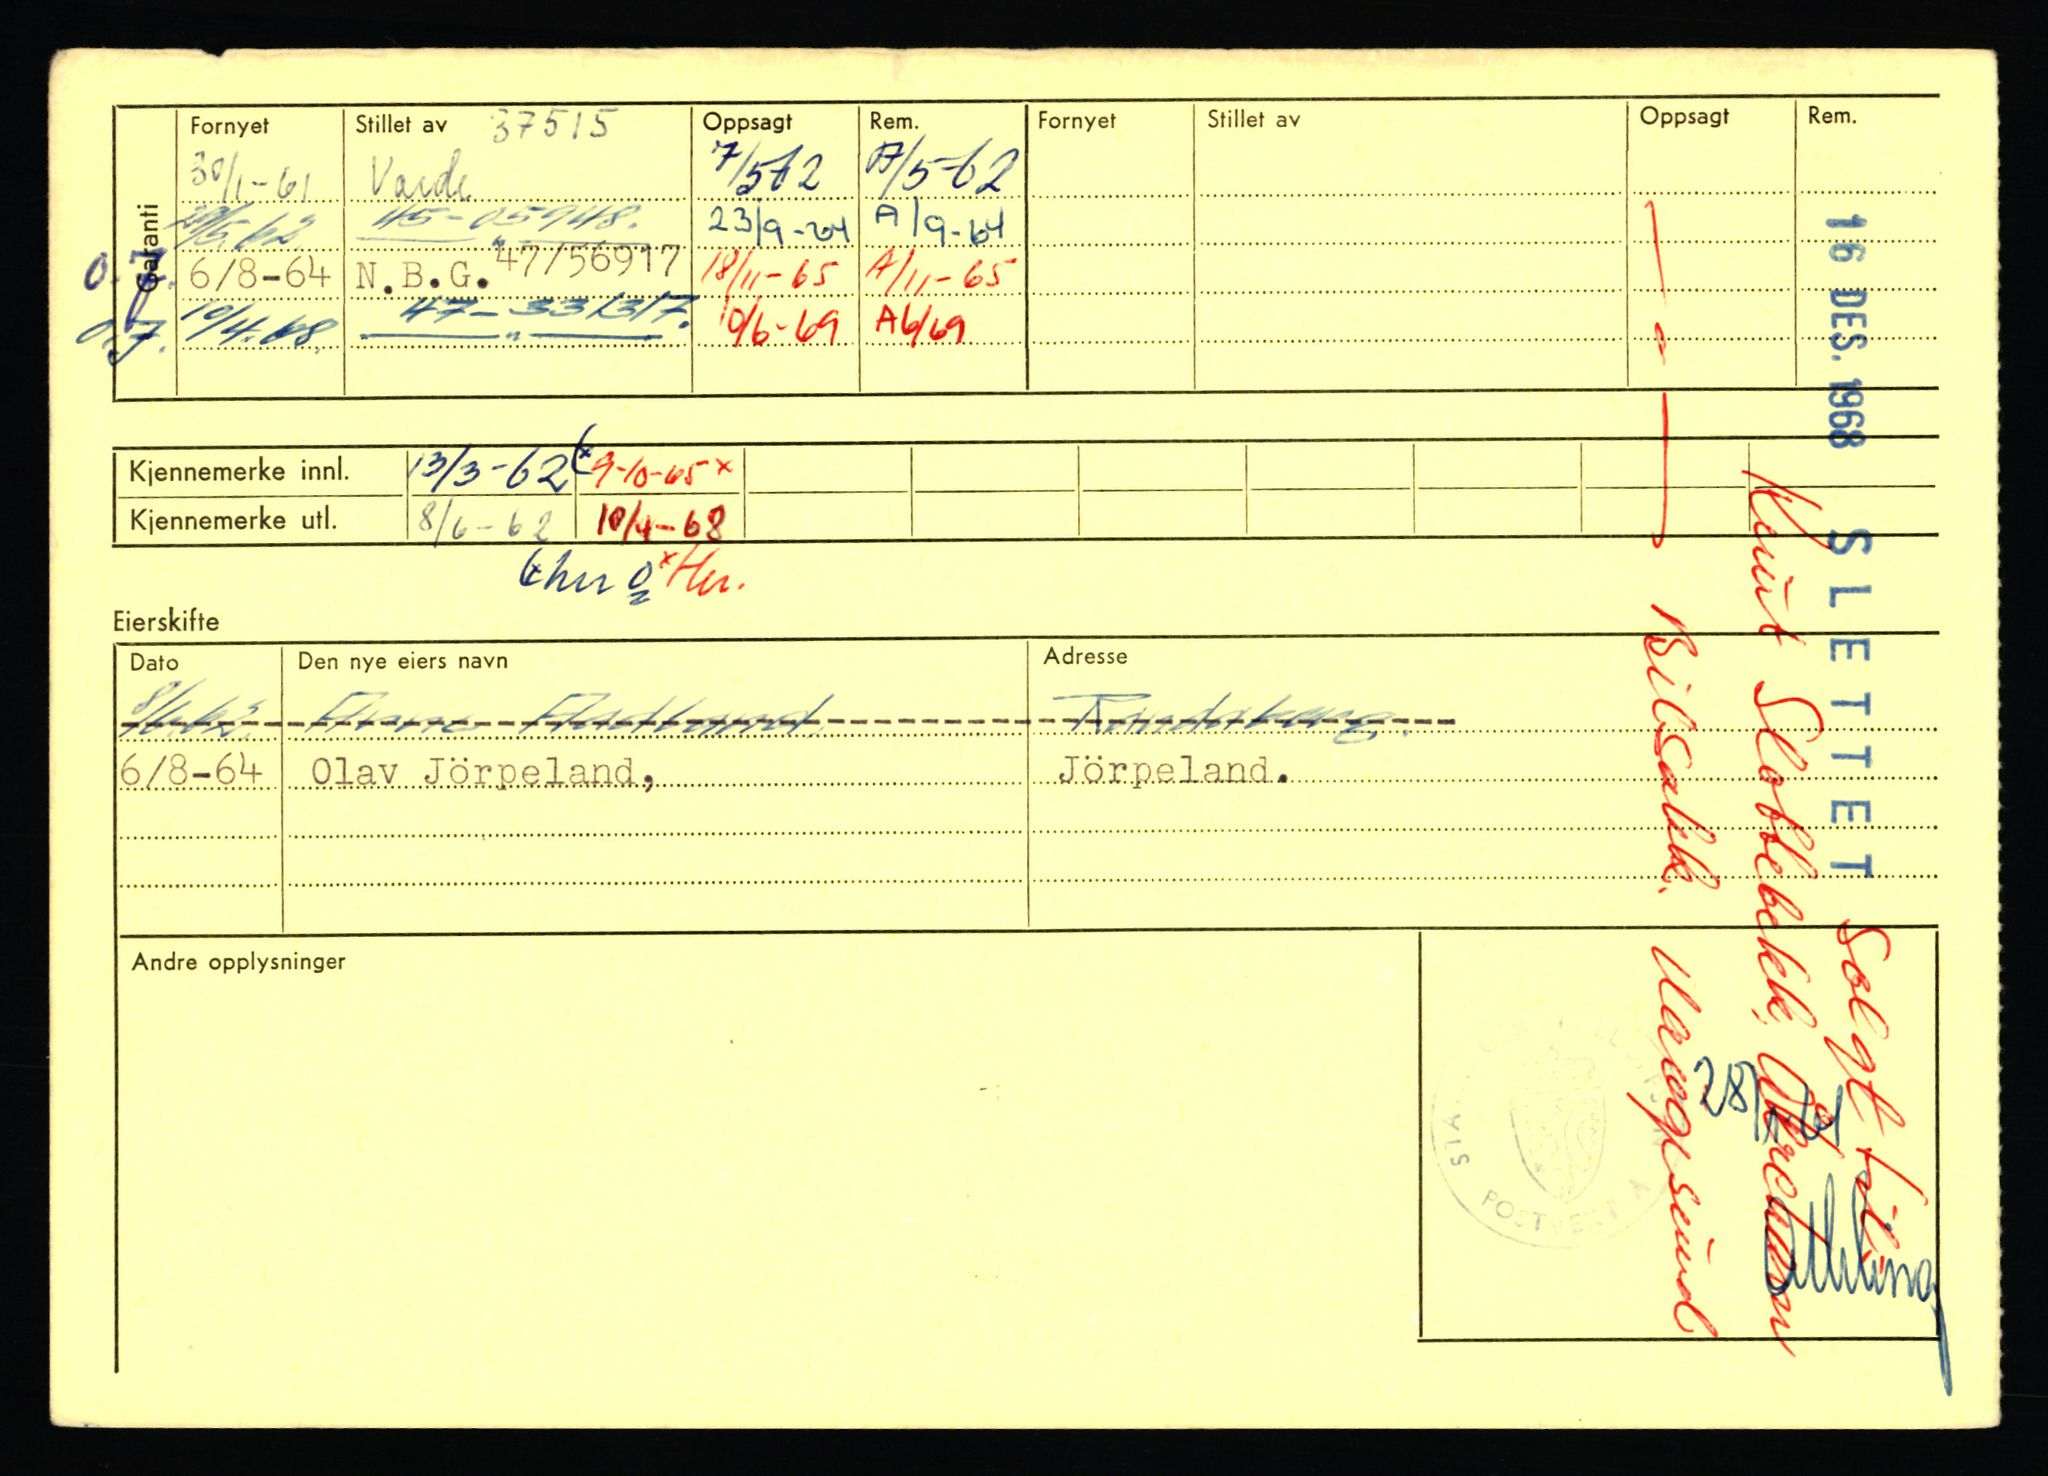 Garanti
Fornyet Stillet av 37515 Oppsagt Rem. Fornyet Stillet av Oppsagt Rem.
30/1-61 Varde 7/5-62 A/5-62
29/5.62 45-05948. 23/9-64 A/9-64
O.J. 6/8-64 N.B.G. 47/56917 18/11-65 A/11-65
O.J. 10/4.68. 47-331317. 10/6-69 A6/69
Kjennemerke innl. 13/3-62 (x 9-10-65 x
Kjennemerke utl. 8/6-62 10/4-68
Eierskifte
Dato Den nye eiers navn Adresse
8/6.62. Randaberg.
6/8-64 Olav Jörpeland, Jörpeland.
Andre opplysninger
16 DES. 1968 SLETTET
Solgt til:
Knut Slottebekk,
Bilsakk. Mangsund
STA POSTVERK
28/